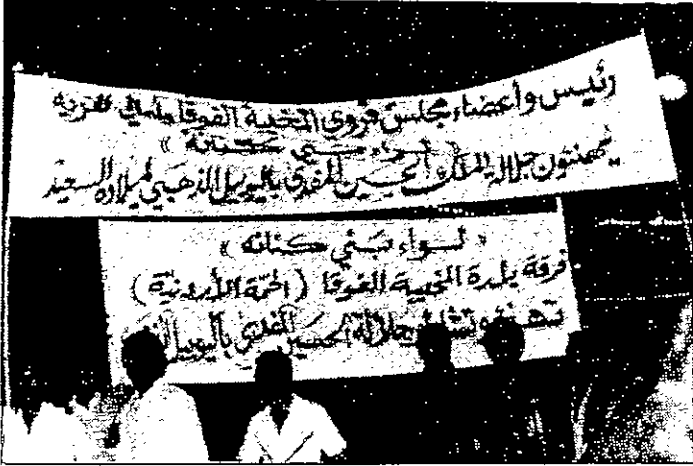 رئيس وأعضاء مجلس قروي المخيبة الفوقا وأهالي القرية
« لواء بني كنانه »
يهنئون جلالة الملك الحسين المفدى باليوبيل الذهبي لميلاده السعيد
« لواء بني كنانه »
فرقة بلدة المخيبة الفوقا ( الحمة الأردنية )
جلالة الحسين المفدى باليوبيل